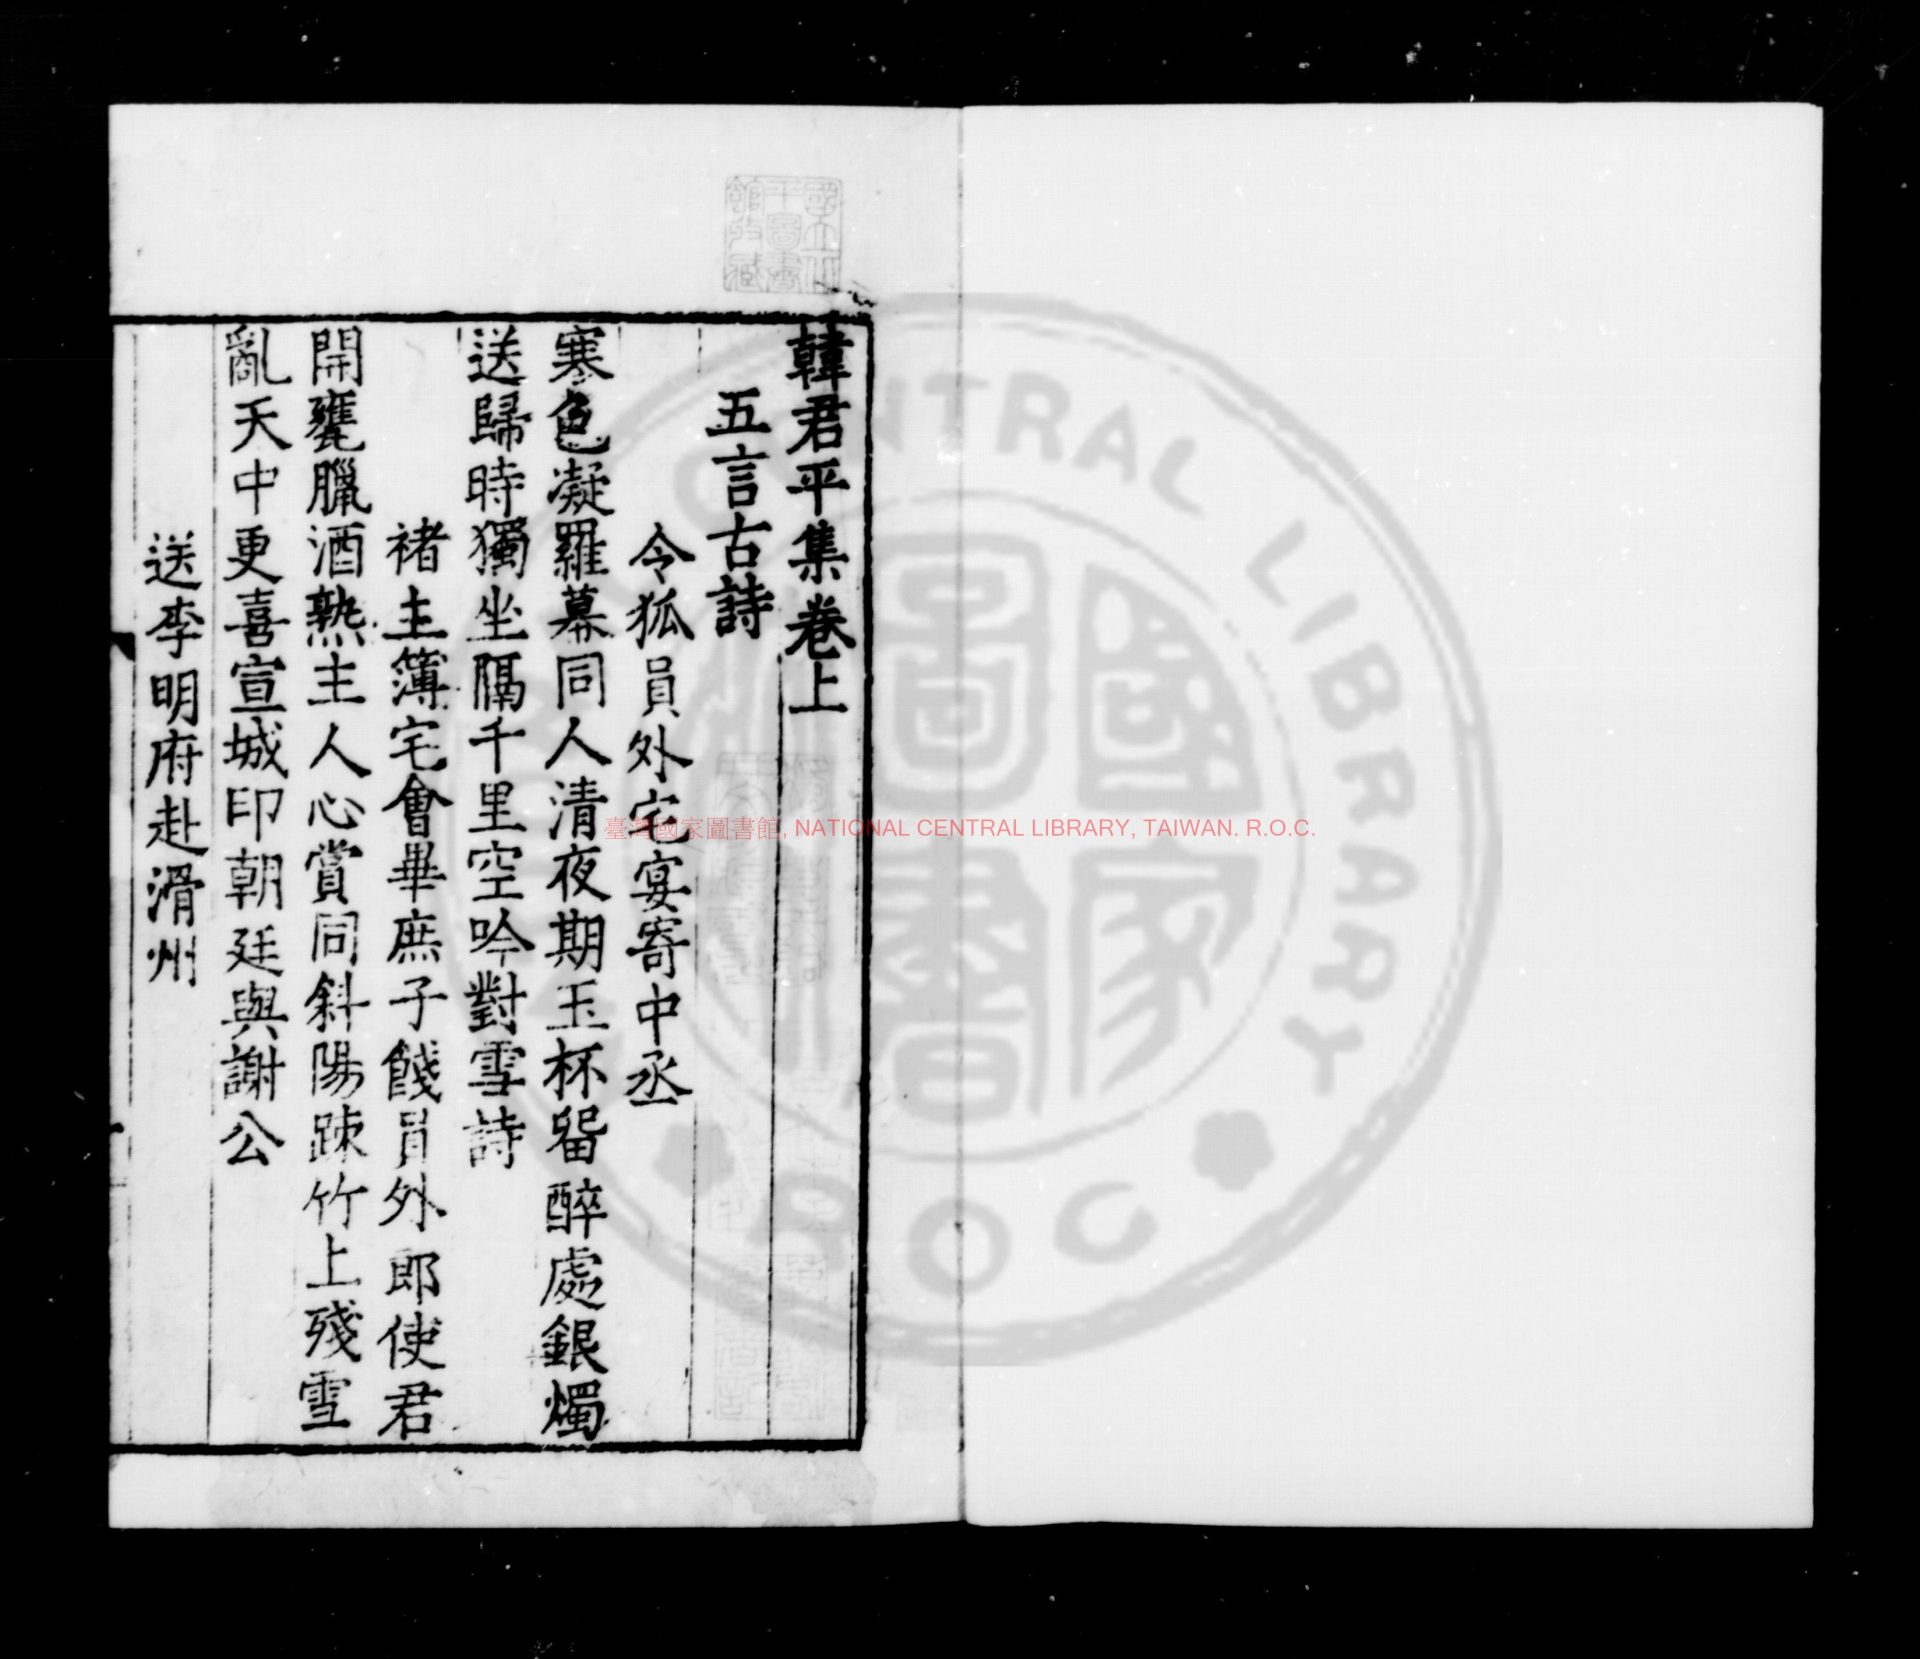 韓君平集卷上
五言古詩
令狐員外宅宴寄中丞
寒色凝羅幕同人清夜期玉杯留醉處銀燭
送歸時獨坐隔千里空吟對雪詩
褚主簿宅會畢庶子餞員外郎使君
開甕臘酒熟主人心賞同斜陽疎竹上殘雪
亂天中更喜宣城印朝廷與謝公
送李明府赴滑州
臺灣國家圖書館, NATIONAL CENTRAL LIBRARY, TAIWAN. R.O.C.
CENTRAL LIBRARY
R O C
國家圖書